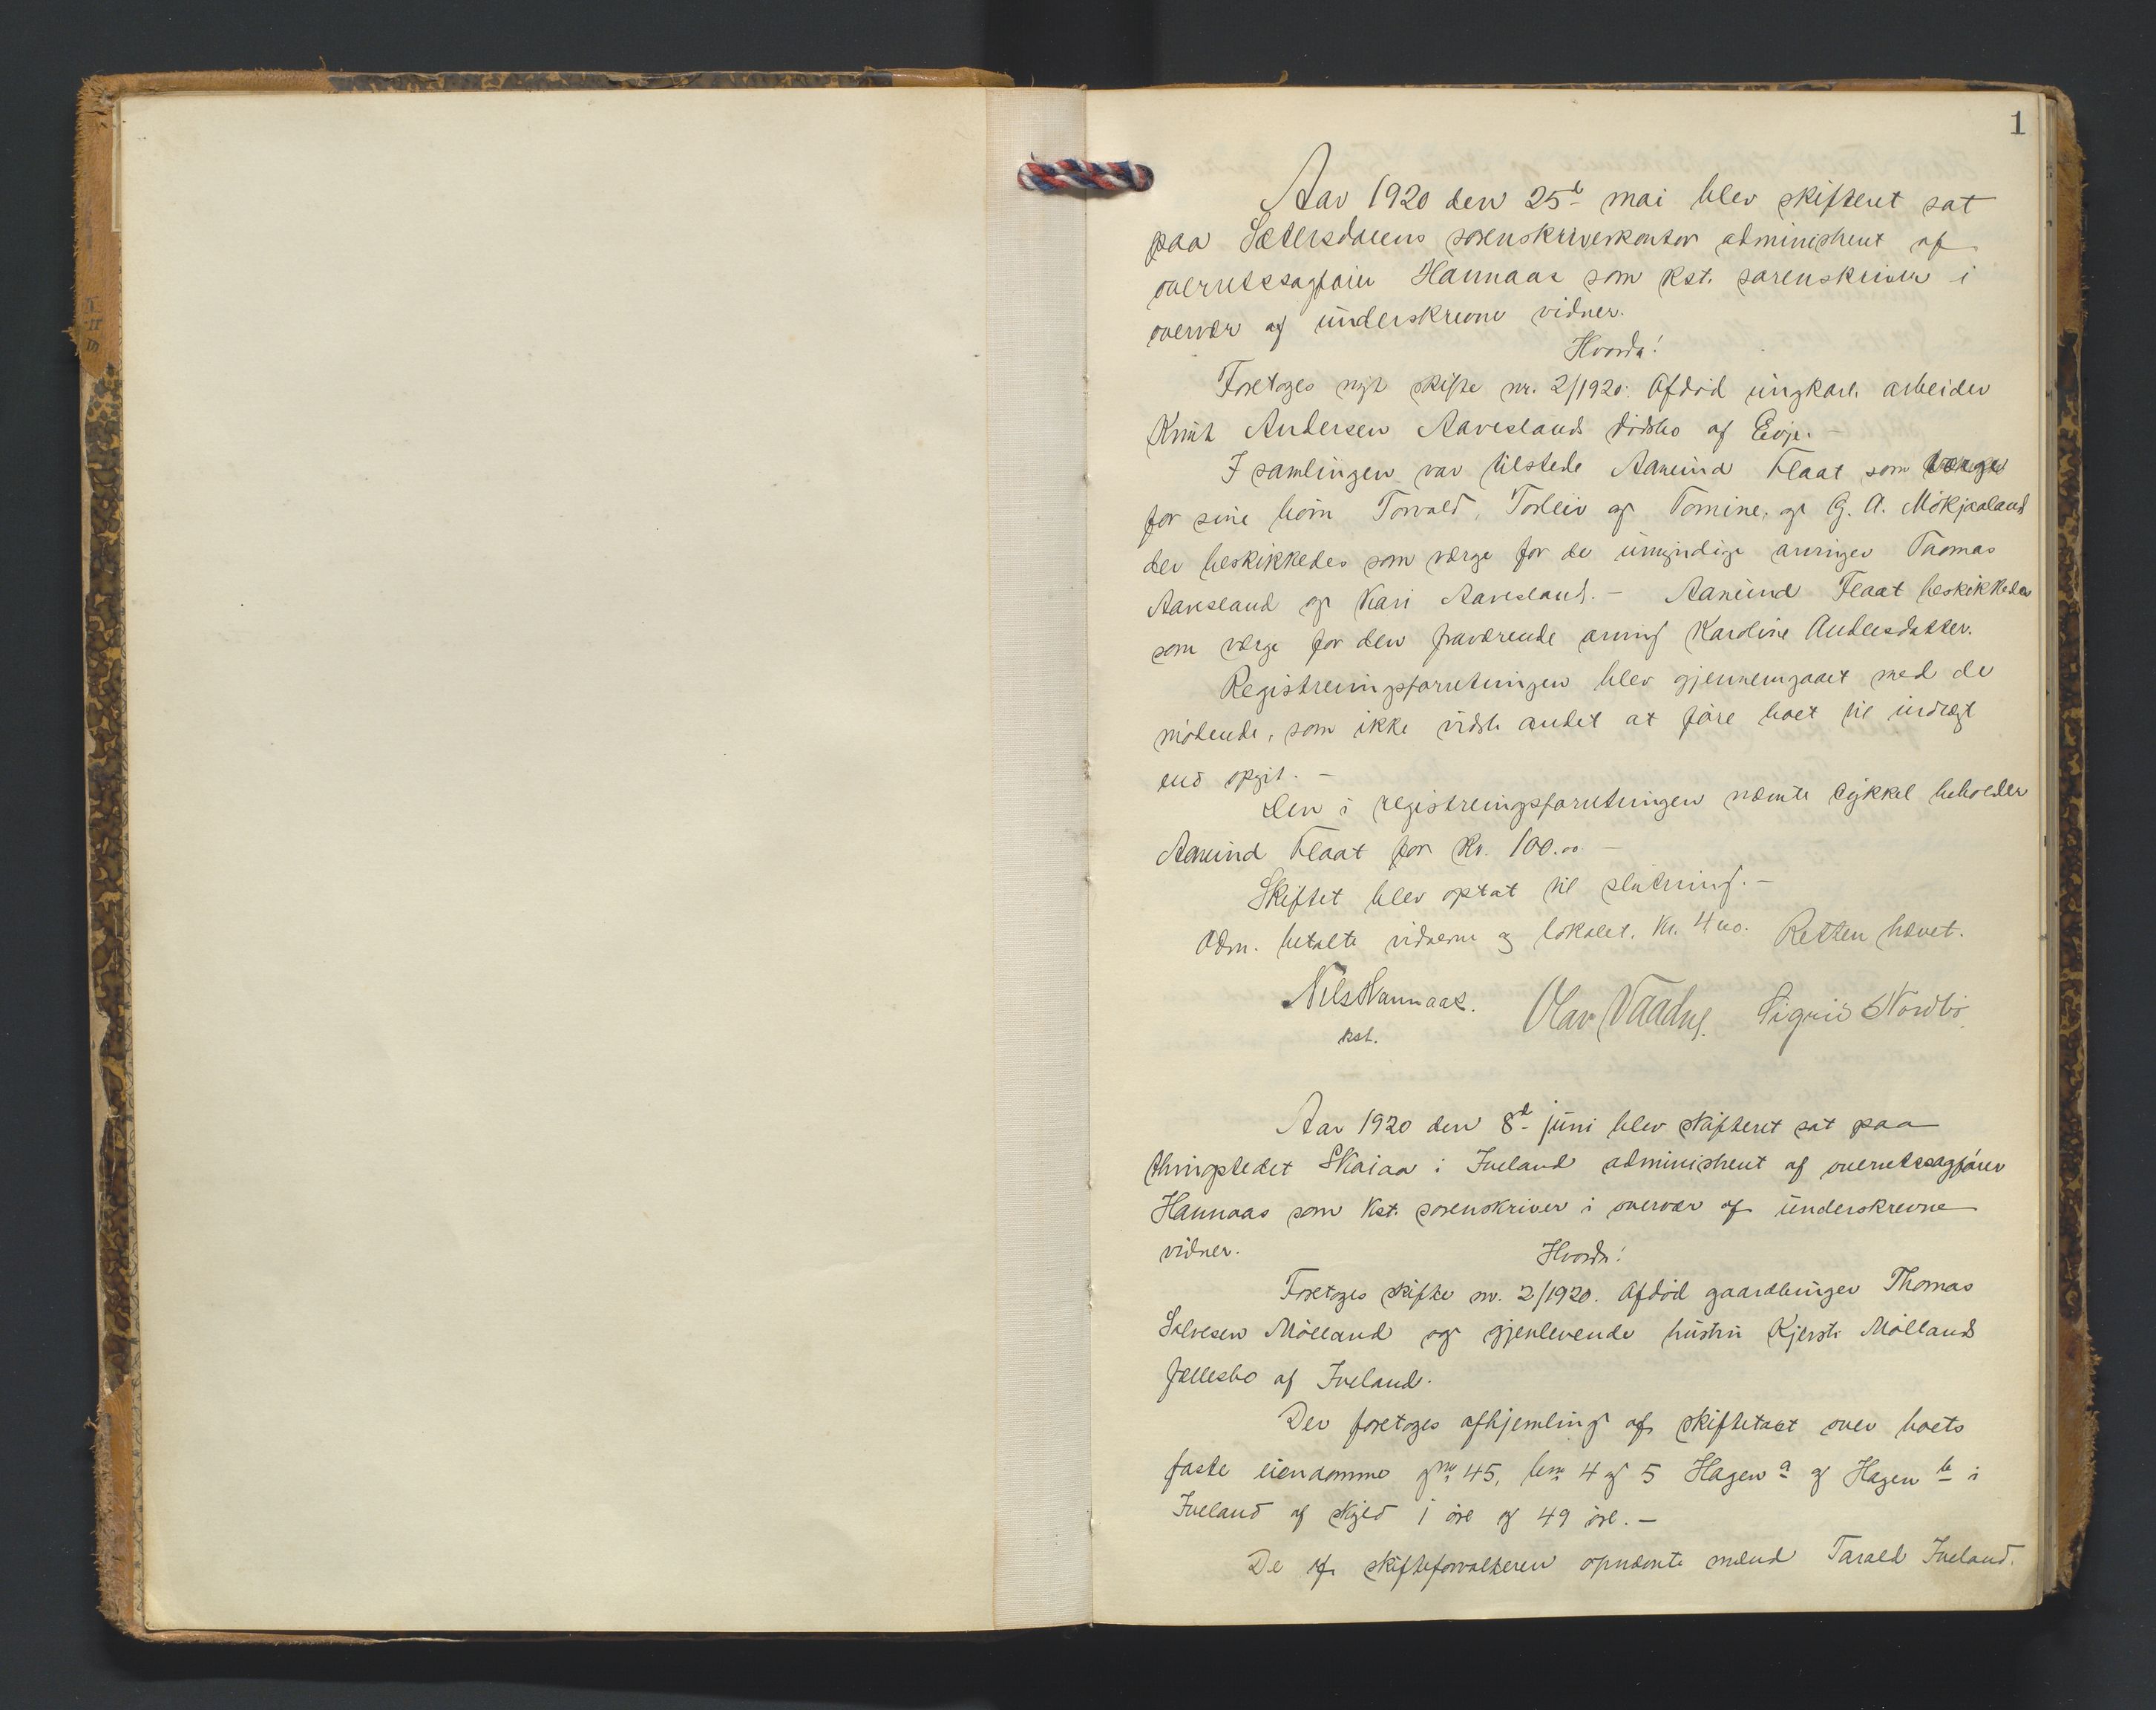 1
Aar 1920 den 25d mai blev skifteret sat
paa Sætersdalens sorenskriverkontor administrert af
overretssagfører Hannaas som kst. sorenskriver i
overvær af underskrevne vidner.
Hvorda!
Foretoges nyt skifte nr. 2/1920. Afdød ungkarl arbeider
Knut Andersen Aaveslands dødsbo af Evje. –
I samlingen var tilstede Aanund Flaat som værge
for sine børn Torvald, Torleiv og Tomine, og G. A. Mökjaaland
der beskikkedes som værge for de umyndige arvinger Thomas
Aavesland og Kari Aavesland. – Aanund Flaat beskikkedes
som værge for den fraværende arving Karoline Andersdatter.
Registreringsforretningen blev gjennemgaaet med de
mødende, som ikke vidste andet at føre boet til indtægt
end opgit. –
Den i registreringsforretningen nævnte cykkel beholder
Aanund Flaat for Kr. 100.00 –
Skiftet blev optat til slutning. –
Adm. betalte vidnerne og lokalet. Kr. 4.00. Retten hævet.
Nils Hannaas. Olav Sigrid Nordbø
kst.
Aar 1920 den 8d juni blev skifteret sat paa
thingstedet Skaiaa i Iveland administrert af overretssagfører
Hannaas som kst. sorenskriver i overvær af underskrevne
vidner. Hvorda!
Foretoges skifte nr. 2/1920. Afdød gaardbruger Thomas
Salvesen Mölland og gjenlevende hustru Kjersti Möllands
fællesbo af Iveland.
Der foretoges afhjemling af skiftetaxt over boets
faste eiendomme gno 45, bno 4 og 5 Hagen a og Hagen b i
Iveland af skyld 1 øre og 49 øre. –
De af skifteforvalteren opnævnte mænd Tarald Iveland.